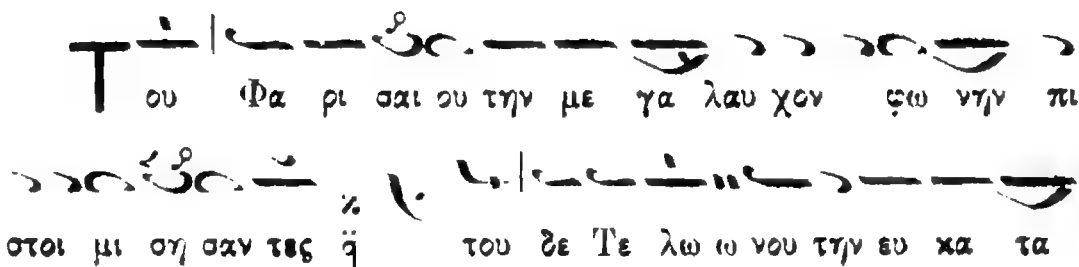 Του Φα ρι σαι ου την με γα λαυ χον φω νην πι
στοι μι ση σαν τες q̈ του δε Τε λω ω νου την ευ κα τα